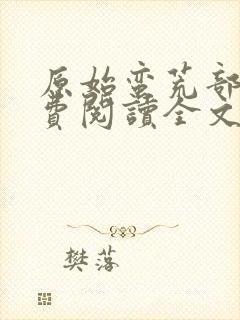 原始蛮荒部
費閱讀全文
樊落